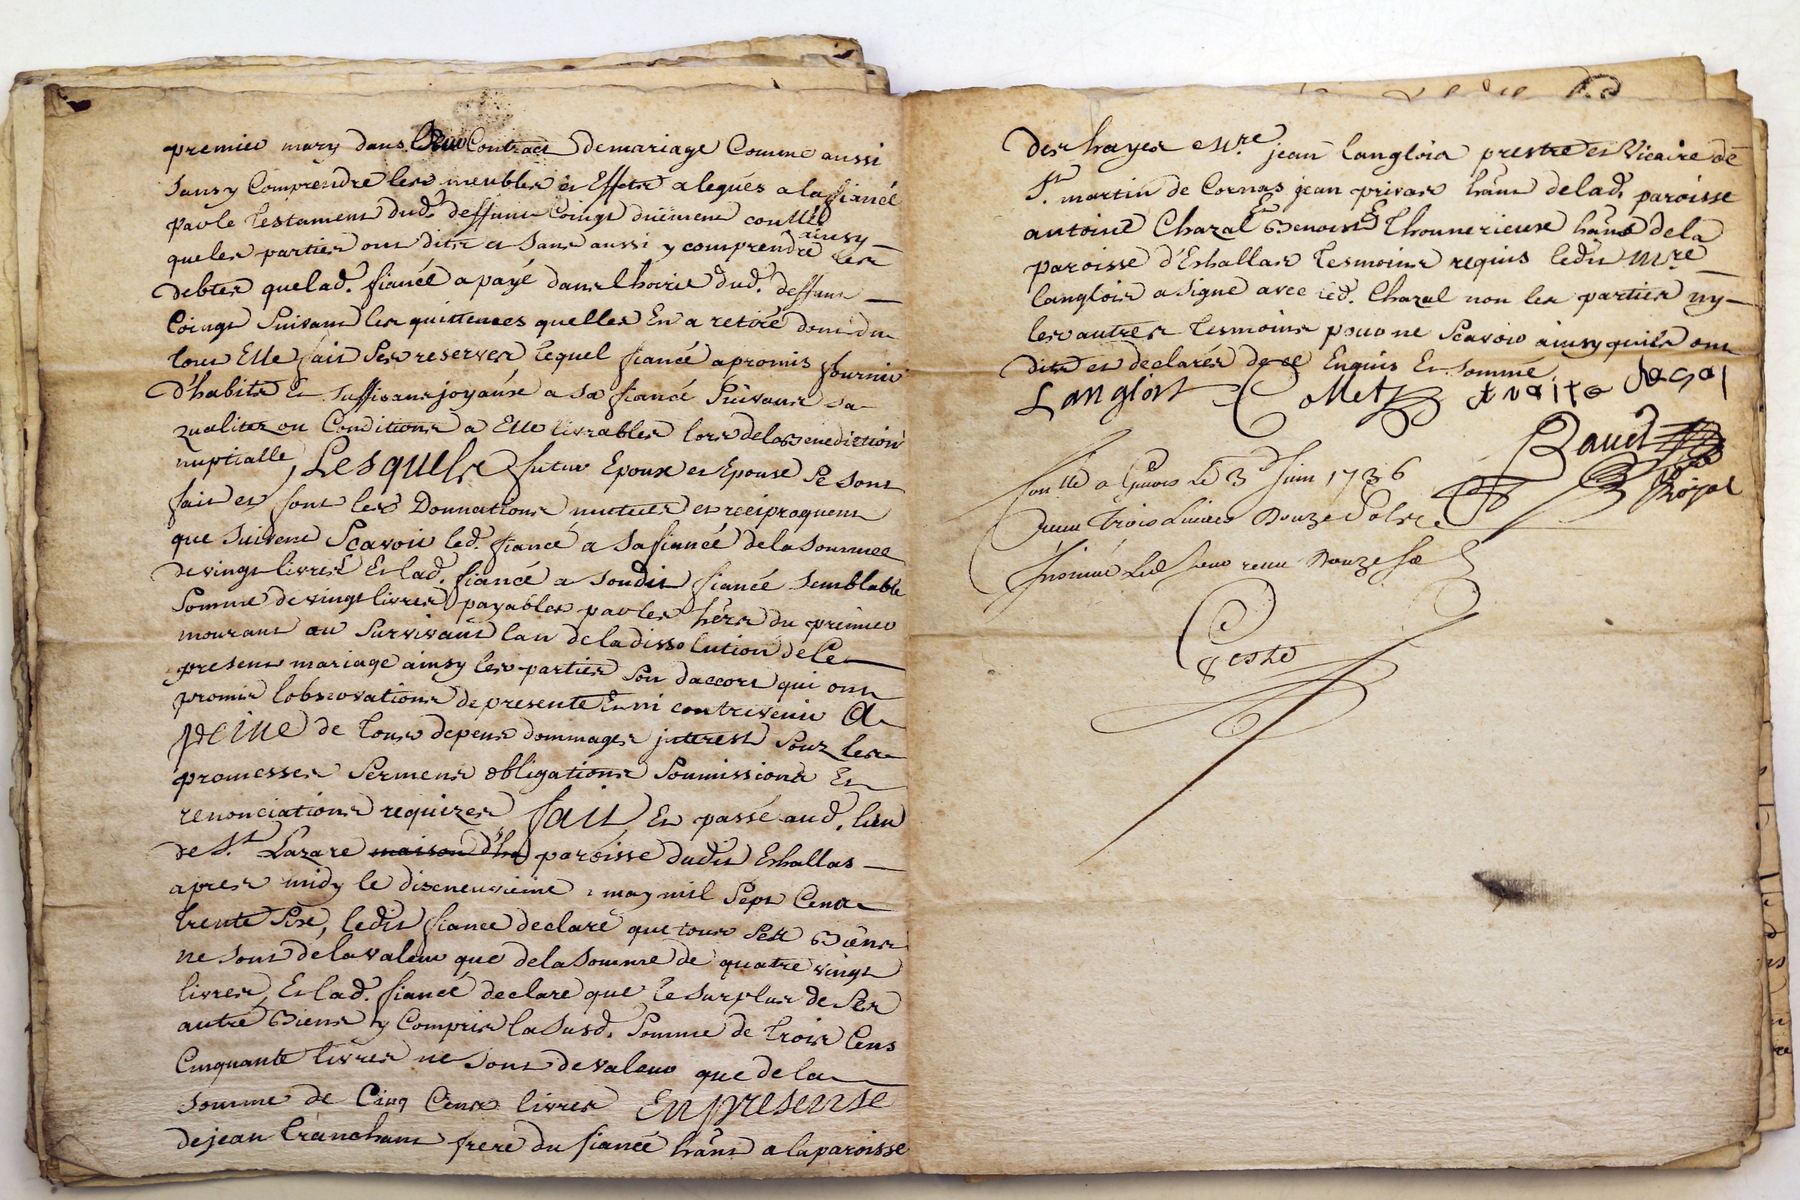 premier mary dans Son Contract de mariage Comme aussi
sans y Comprendre les meubles et Effets a legués a la fiancé
par le testament dud. deffunt Coingt düement conttlé
ainsy
que les parties ont dits et sans aussi y comprendre les
debtes que lad. fiancée a payé dans lhoirie dud. deffunt
Coingt Suivant les quittences quelles En a retiré dont du
tout Elle fait Ses reserves, lequel fiancé a promis fournir
d'habits Et suffisans joyaux a sa fiancé Suivant sa
qualitez ou Conditions a Elle livrables lors de la Benediction
nuptialle, Lesquels futur Epoux et Epouse Se sont
fait et font les Donnations mutues et reciproquent
que suivent Scavoir led. fiancé a sa fiancé de la sommee
de vingt livres Et lad. fiancé a soudit fiancé semblable
somme de vingt livres payables par les hērs du premier
mourant au survivant lan de la dissolution de Ce
present mariage ainsy les parties son daccort qui ont
promis lobservations de presente Et ni contrevenir a
peine de tous depens dommages interest souz les
promesses serments obligations soumissions Et
renonciations requizes fait Et passé aud. lieu
de St. Lazare maison d'ha paroisse dudit Eshallas
apres midy le dixneuvieme may mil sept Cent
trente six, ledit fiance declaré que tous ses Biens
ne sont de la valeur que de la somme de quatre vingt
livres, Et lad. fiancé declare que le surplus de ses
autre Biens y Compris la susd. somme de trois Cens
Cinquante livres ne sont de valeur que de la
somme de Cinq Cens livres En presense
de jean tranchant frere du fiancé hānt a la paroisse
des hayes Mre jean langlois prestre et Vicaire de
St. martin de Cornas jean privas hānt de lad. paroisse
antoine Chazal Et Benoist Thonnerieux hāns de la
paroisse d'Eshallas tesmoins requis ledit Mre
langlois a signé avec led. Chazal non les parties ny
les autres tesmoins pour ne scavoir ainsy quils ont
dits et declarés de ce Enquis Et sommé
Langlois Collet Antoine Chazal
Bauet
Conttlé a Givors Le 3e Juin 1736
Receu Trois Livres Douze sols
Insinué Led Jour receu Douze s